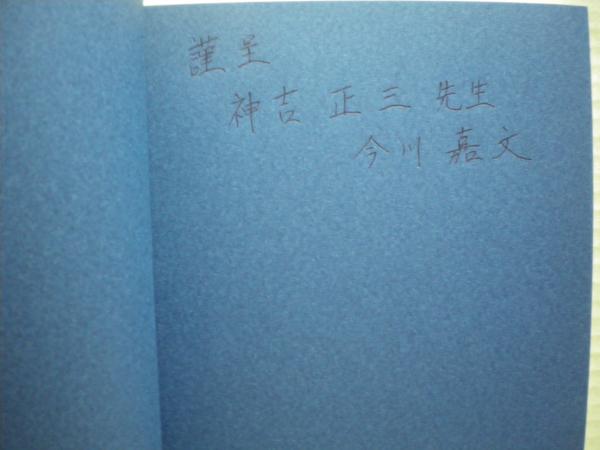 謹呈
神吉 正三 先生
今川 嘉文